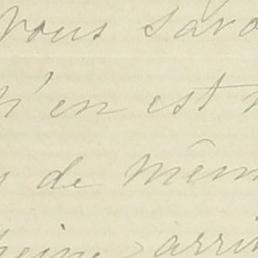 vous savo
n'en est
de mêm
peine arriv